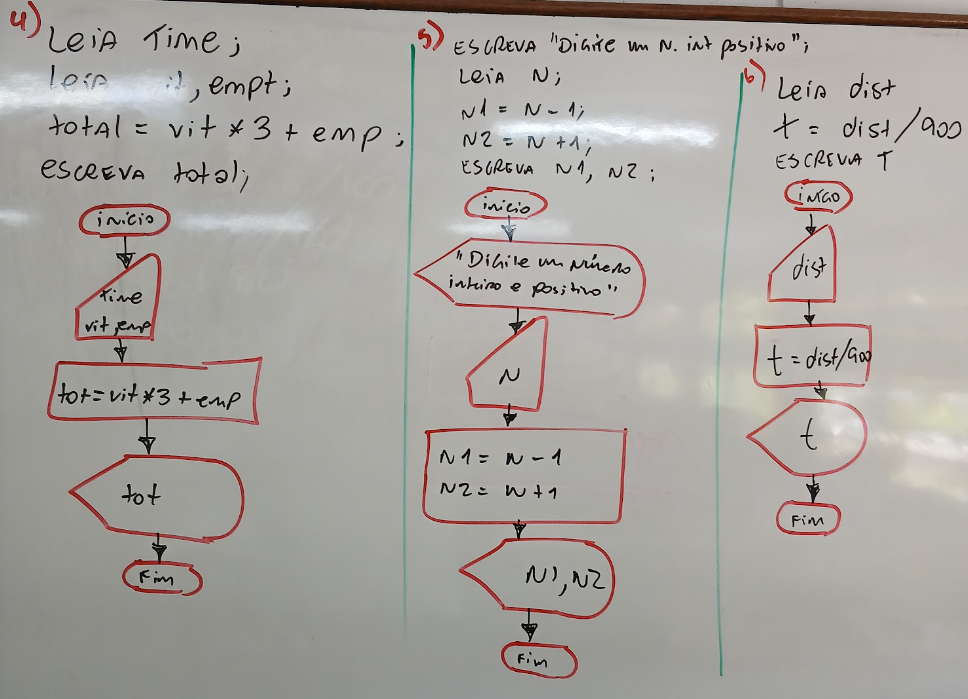 4)
LeiA Time;
Leia it, empt;
total = vit * 3 + emp;
escreva total;
início
time
vit, emp
tot = vit * 3 + emp
tot
Fim
5)
ESCREVA "Digite um N. int positivo";
Leia N;
N1 = N - 1;
N2 = N + 1;
ESCREVA N1, N2;
início
"Digite um número
inteiro e positivo"
N
N1 = N - 1
N2 = N + 1
N1, N2
Fim
6)
Leia dist
t = dist/900
ESCREVA T
início
dist
t = dist/900
t
Fim